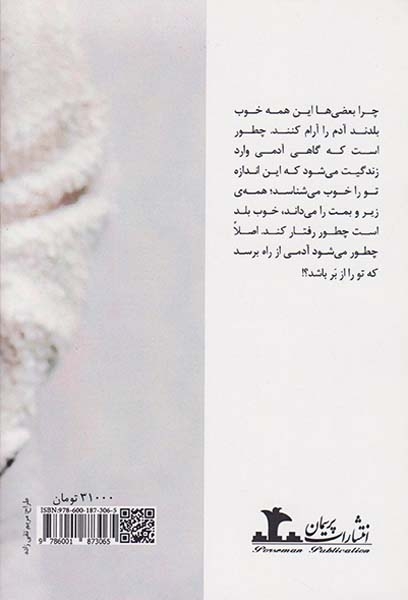 چرا بعضی‌ها این همه خوب
بلدند آدم را آرام کنند. چطور
است که گاهی آدمی وارد
زندگیت می‌شود که این اندازه
تو را خوب می‌شناسد؛ همه‌ی
زیر و بمت را می‌داند، خوب بلد
است چطور رفتار کند. اصلاً
چطور می‌شود آدمی از راه برسد
که تو را از بَر باشد؟!
۳۱۰۰۰ تومان
ISBN:978-600-187-306-5
9 786001 873065
طراح: مریم تقی زاده
انتشارات پریمان
Perseman Publication